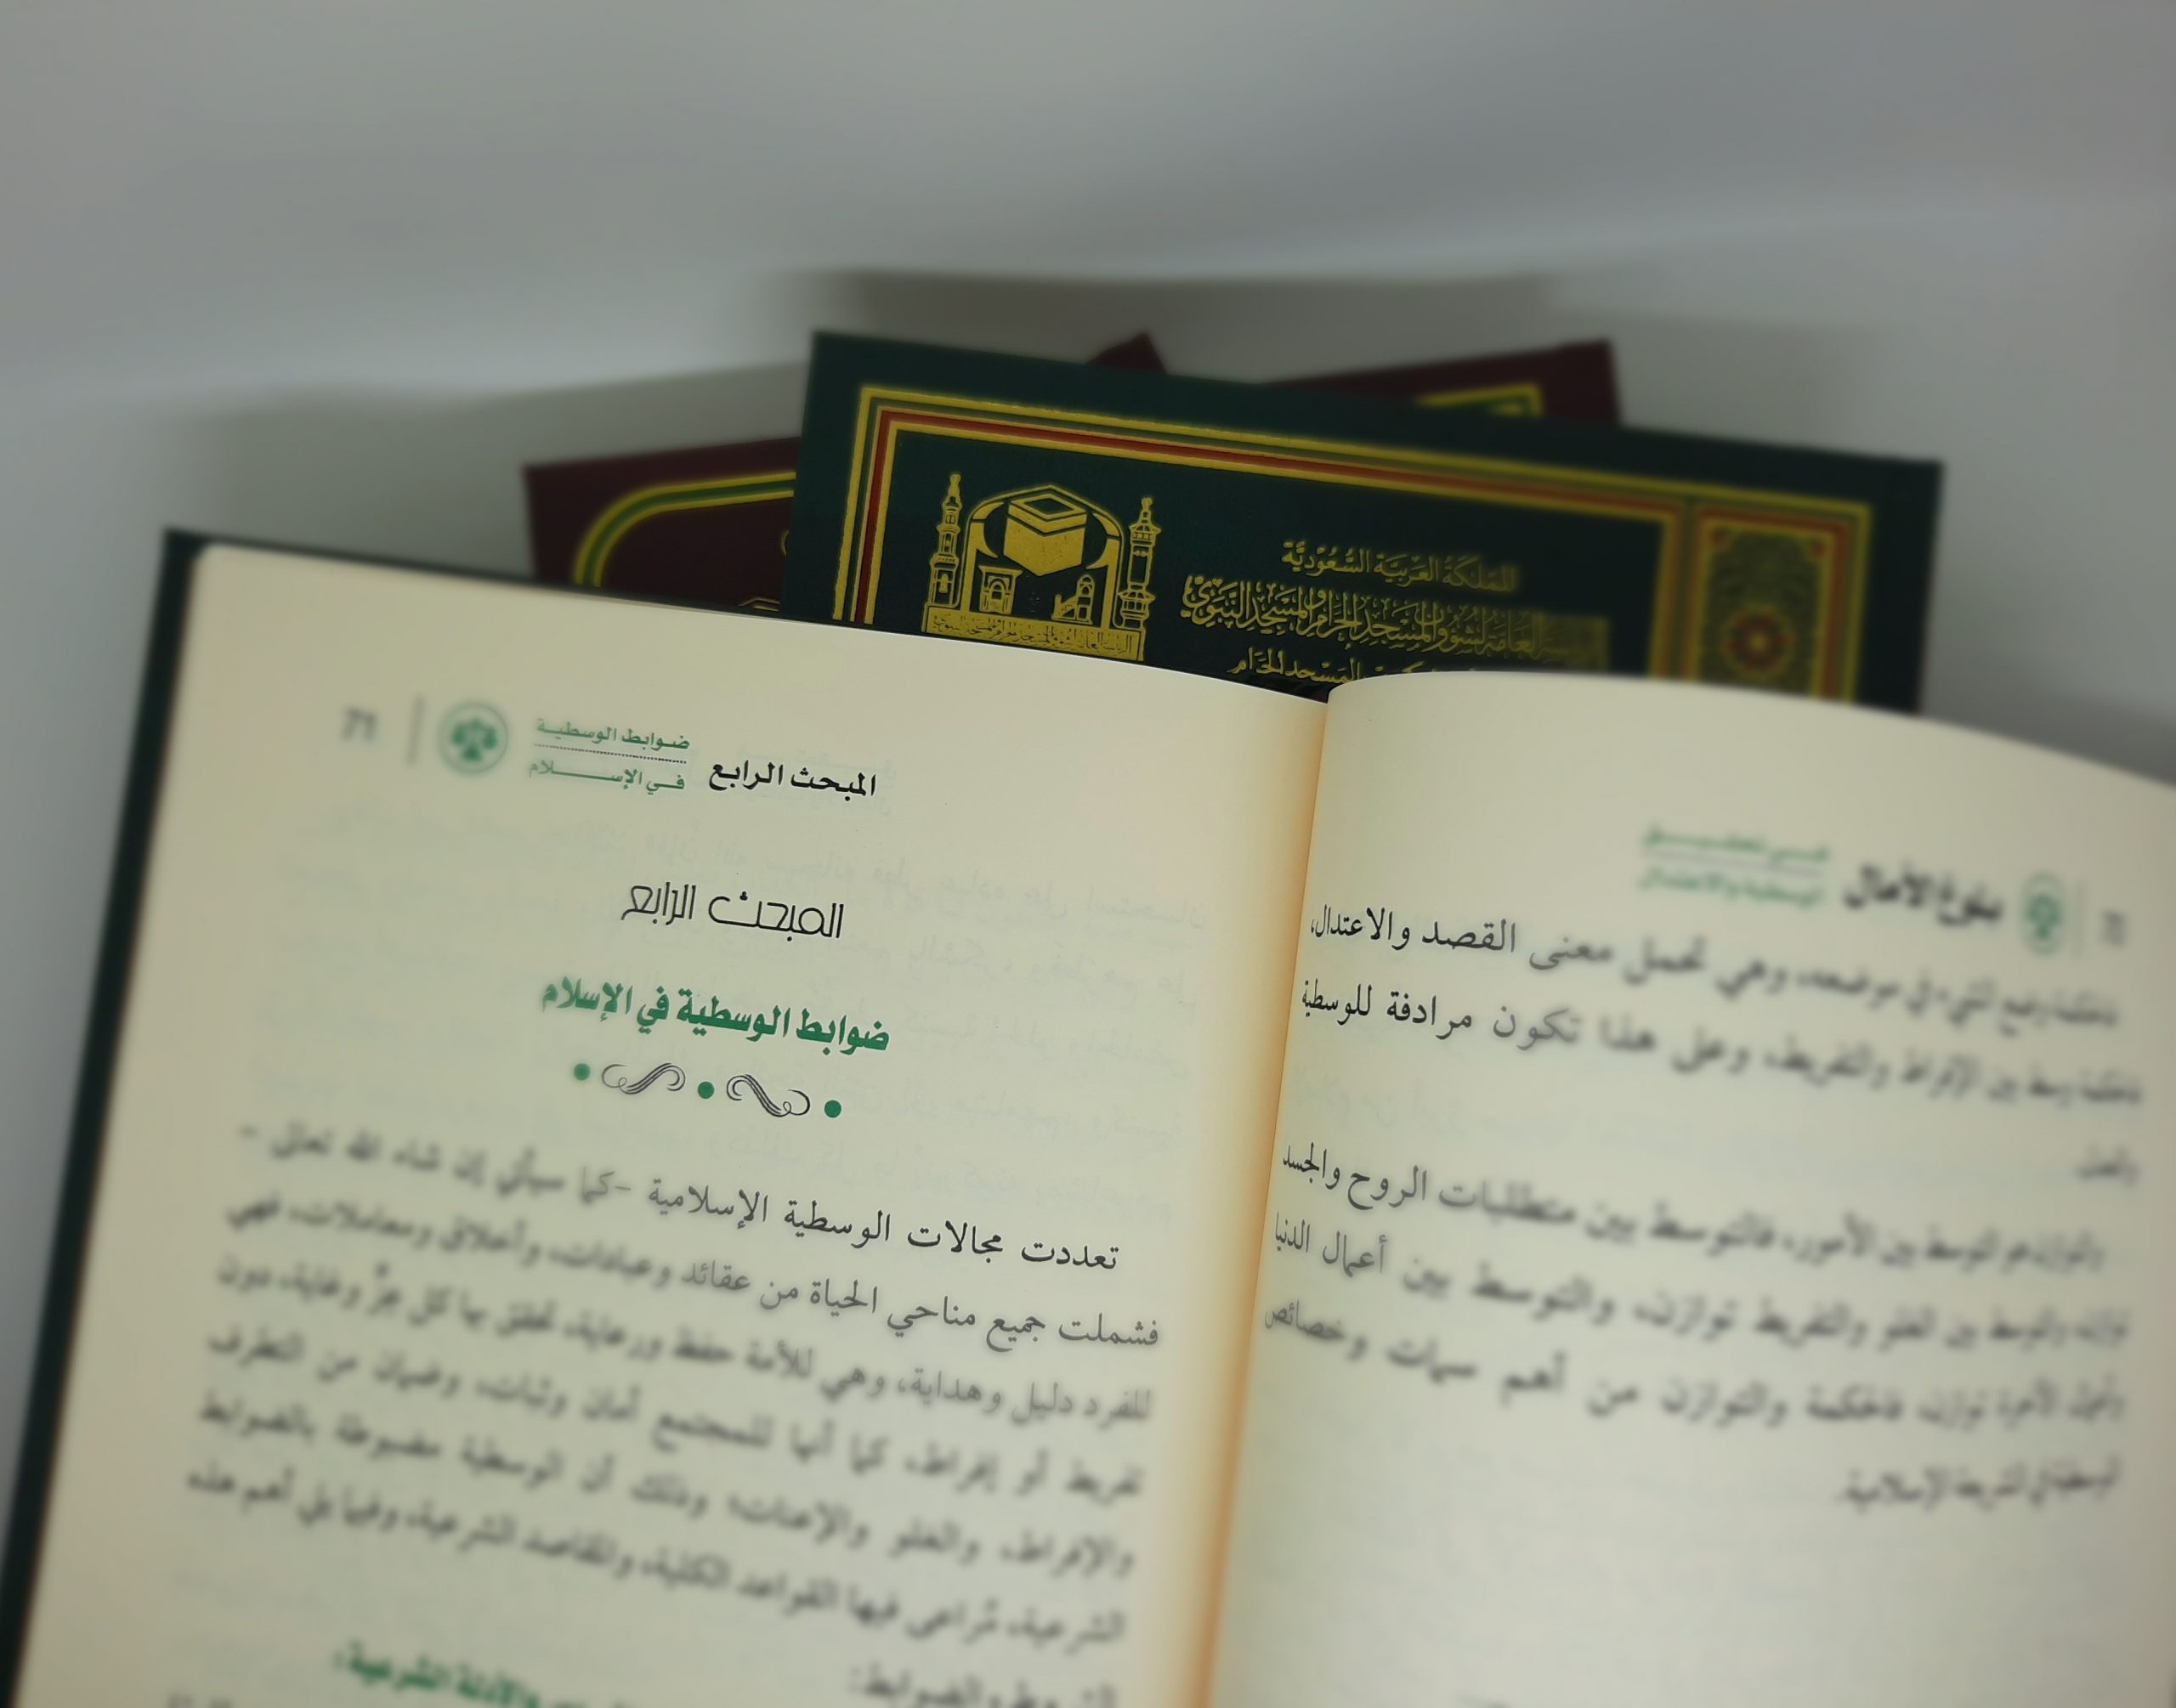 المملكة العربية السعودية
العامة لشؤون المسجد الحرام والمسجد النبوي
المسجد الحرام
بلوغ الآمال
وضع الشيء في موضعه، وهي تحمل معنى القصد والاعتدال،
وسط بين الإفراط والتفريط، وعلى هذا تكون مرادفة للوسطية
والتوازن هو التوسط بين الأمور، فالتوسط بين متطلبات الروح والجسد
توازن، والتوسط بين الغلو والتفريط توازن، والتوسط بين أعمال الدنيا
وأعمال الآخرة توازن، فالحكمة والتوازن من أهم سمات وخصائص
الوسطية في الشريعة الإسلامية.
المبحث الرابع
ضوابط الوسطية
في الإسلام
71
المبحث الرابع
ضوابط الوسطية في الإسلام
تعددت مجالات الوسطية الإسلامية -كما سيأتي إن شاء الله تعالى-
فشملت جميع مناحي الحياة من عقائد وعبادات، وأخلاق ومعاملات، فهي
للفرد دليل وهداية، وهي للأمة حفظ ورعاية، تحقق بها كل عزٍّ وغاية، دون
تفريط أو إفراط، كما أنها للمجتمع أمان وثبات، وضمان من التطرف
والإفراط، والغلو والإعنات؛ وذلك أن الوسطية مضبوطة بالضوابط
الشرعية، مُراعى فيها القواعد الكلية، والمقاصد الشرعية، وفيما يلي أهم هذه
الشروط والضوابط:
والأدلة الشرعية: